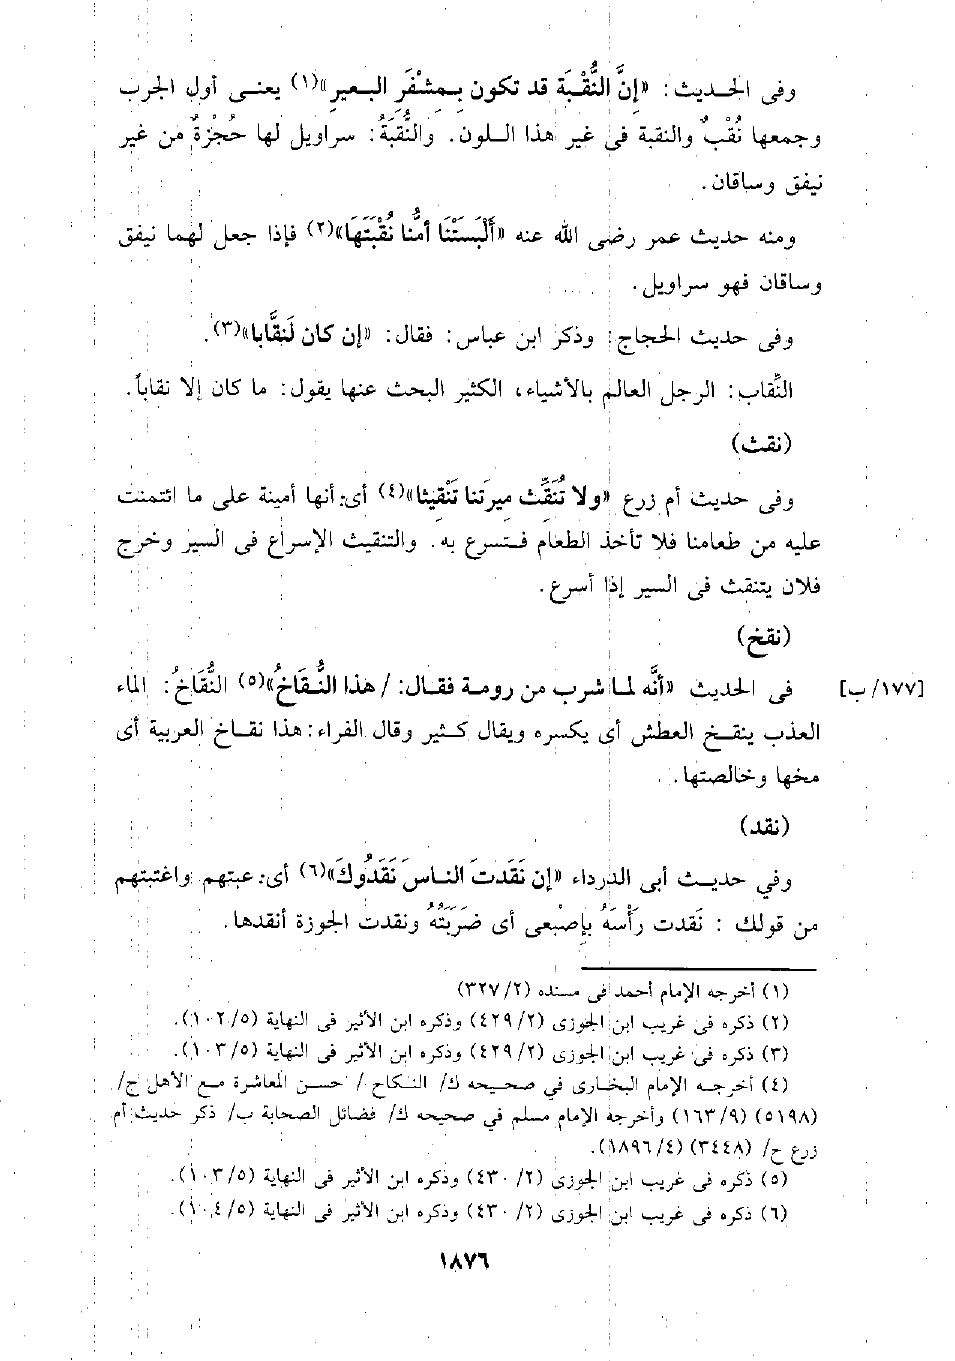 وفى الحديث: «إنَّ النُّقْبَة قد تكون بِمِشْفَرِ البعير»(١) يعنى أول الجرب
وجمعها نُقْبٌ والنقبة فى غير هذا اللون. والنُّقبَةُ: سراويل لها حُجْزةٌ من غير
نيفق وساقان.
ومنه حديث عمر رضى الله عنه «أَلْبَسَتْنَا أمُّنا نُقْبَتَهَا»(٢) فإذا جعل لهما نيفق
وساقان فهو سراويل.
وفى حديث الحجاج: وذكر ابن عباس: فقال: «إن كان لَنقَّابا»(٣).
النَّقاب: الرجل العالم بالأشياء، الكثير البحث عنها يقول: ما كان إلا نقاباً.
(نقث)
وفى حديث أم زرع «ولا تُنَقِّث ميرَتنا تَنْقِيثا»(٤) أى: أنها أمينة على ما ائتمنت
عليه من طعامنا فلا تأخذ الطعام فتسرع به. والتنقيث الإسراع فى السير وخرج
فلان يتنقث فى السير إذا أسرع.
(نقخ)
فى الحديث «أنَّه لما شرب من رومة فقال: / هذا النُّقَاخُ»(٥) النُّقَاخُ: الماء [١٧٧/ ب]
العذب ينقخ العطش أى يكسره ويقال كثير وقال الفراء: هذا نقاخ العربية أى
مخها وخالصتها.
(نقد)
وفي حديث أبى الدرداء «إن نَقَدتَ الناسَ نَقَدُوكَ»(٦) أى: عبتهم واغتبتهم
من قولك : نَقدت رَأْسَهُ بِإصْبْعى أى ضَرَبَتُهُ ونقدت الجوزة أنقدها.
(١) أخرجه الإمام أحمد فى مسنده (٣٢٧/٢)
(٢) ذكره فى غريب ابن الجوزى (٤٢٩/٢) وذكره ابن الأثير فى النهاية (١٠٢/٥).
(٣) ذكره فى غريب ابن الجوزى (٤٢٩/٢) وذكره ابن الأثير فى النهاية (١٠٣/٥).
(٤) أخرجه الإمام البخارى في صحيحه ك/ النكاح / حسن المعاشرة مع الأهل ح/
(٥١٩٨) (١٦٣/٩) وأخرجه الإمام مسلم في صحيحه ك/ فضائل الصحابة ب/ ذكر حديث أم
زرع ح/ (٣٤٤٨) (١٨٩٦/٤).
(٥) ذكره فى غريب ابن الجوزى (٤٣٠/٢) وذكره ابن الأثير فى النهاية (١٠٣/٥).
(٦) ذكره فى غريب ابن الجوزى (٤٣٠/٢) وذكره ابن الأثير فى النهاية (١٠٤/٥).
١٨٧٦